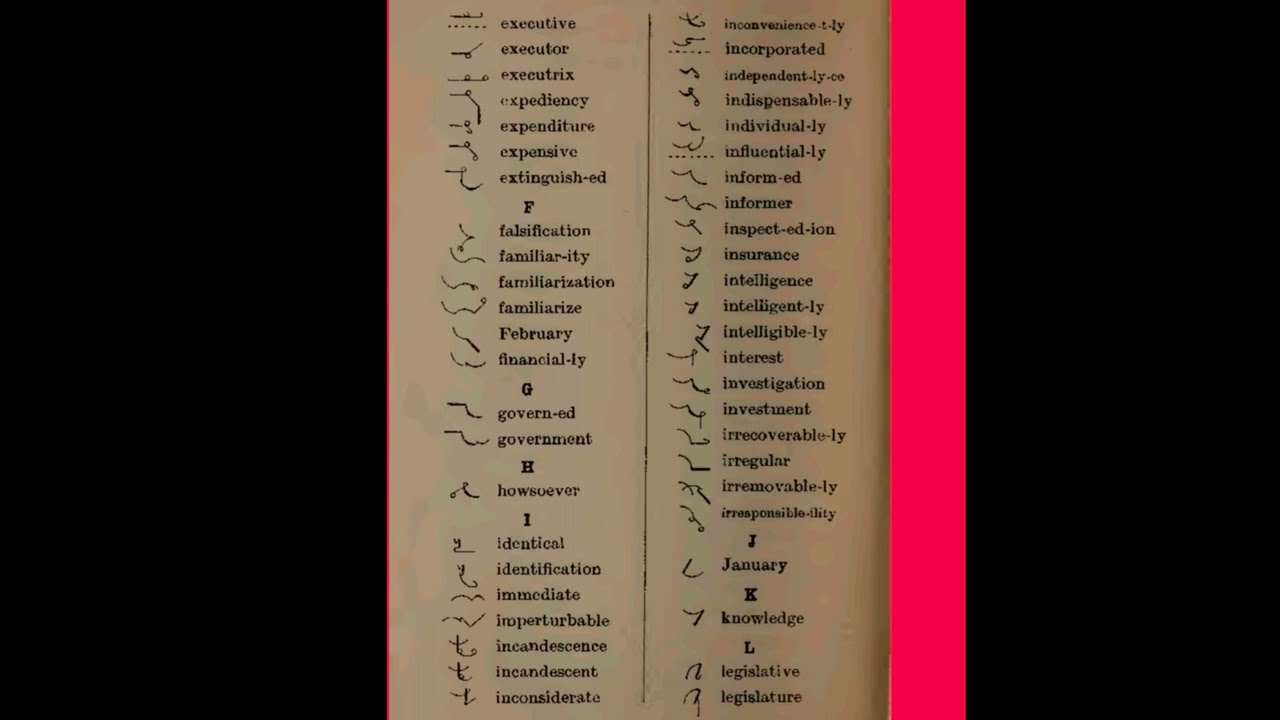 executive
executor
executrix
expediency
expenditure
expensive
extinguish-ed
F
falsification
familiar-ity
familiarization
familiarize
February
financial-ly
G
govern-ed
government
H
howsoever
I
identical
identification
immediate
imperturbable
incandescence
incandescent
inconsiderate
inconvenience-t-ly
incorporated
independent-ly-ce
indispensable-ly
individual-ly
influential-ly
inform-ed
informer
inspect-ed-ion
insurance
intelligence
intelligent-ly
intelligible-ly
interest
investigation
investment
irrecoverable-ly
irregular
irremovable-ly
irresponsible-ility
J
January
K
knowledge
L
legislative
legislature